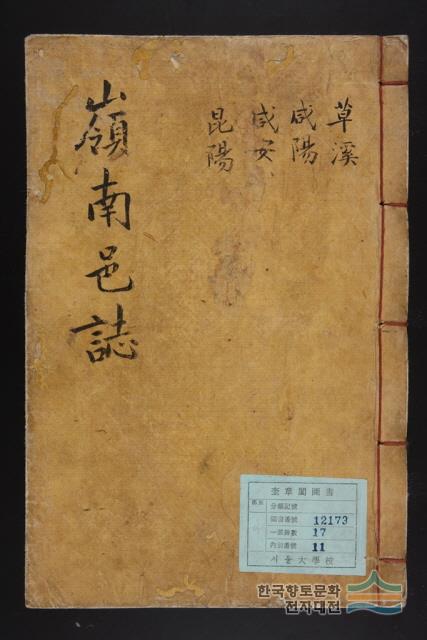 嶺南邑誌
草溪
咸陽
咸安
昆陽
奎章閣圖書
分類記號
圖書番號 12173
一部冊數 17
內別番號 11
서울大學校
한국향토문화
전자대전